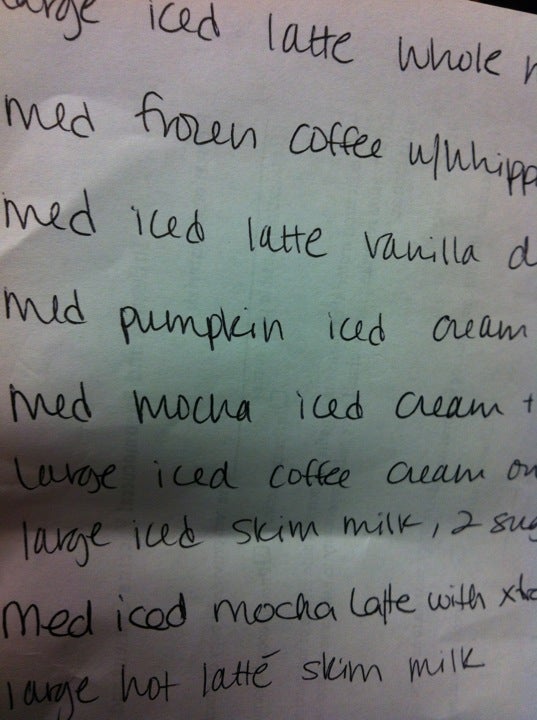 large iced latte whole
med frozen coffee w/whipp
med iced latte vanilla d
med pumpkin iced cream
med mocha iced cream +
large iced coffee cream on
large iced skim milk, 2 sug
med iced mocha latte with xtra
large hot latté skim milk